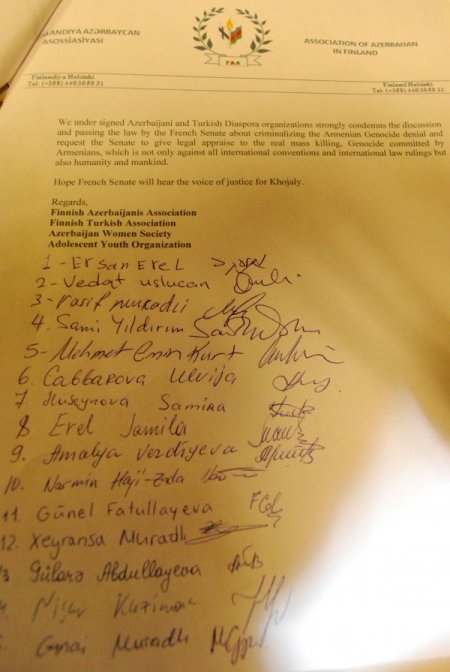 LANDIYA AZƏRBAYCAN
ASSOSSIASIYASI
FAA
ASSOCIATION OF AZERBAIJAN
IN FINLAND
Finlandiya Helsinki
Tel: (+358) 440 30 80 31
Finland Helsinki
Tel: (+358) 440 30 80 31
We under signed Azerbaijani and Turkish Diaspora organizations strongly condemns the discussion
and passing the law by the French Senate about criminalizing the Armenian Genocide denial and
request the Senate to give legal appraise to the real mass killing, Genocide committed by
Armenians, which is not only against all international conventions and international law rulings but
also humanity and mankind.
Hope French Senate will hear the voice of justice for Khojaly.
Regards,
Finnish Azerbaijanis Association
Finnish Turkish Association
Azerbaijan Women Society
Adolescent Youth Organization
1 - Ersan Erel
2 - Vedat uslucan
3 -
4. Sami Yıldırım
5 - Mehmet Emin Kurt
6. Cabbarova Ulvija
7 Hüseynova Samira
8 Erel Jamila
9. Amalya Verdiyeva
10. Narmin Haji-Zada
11. Günel Fatullayeva
12. Xeyransa Muradlı
3 Gülarə Abdullayeva
Muradlı